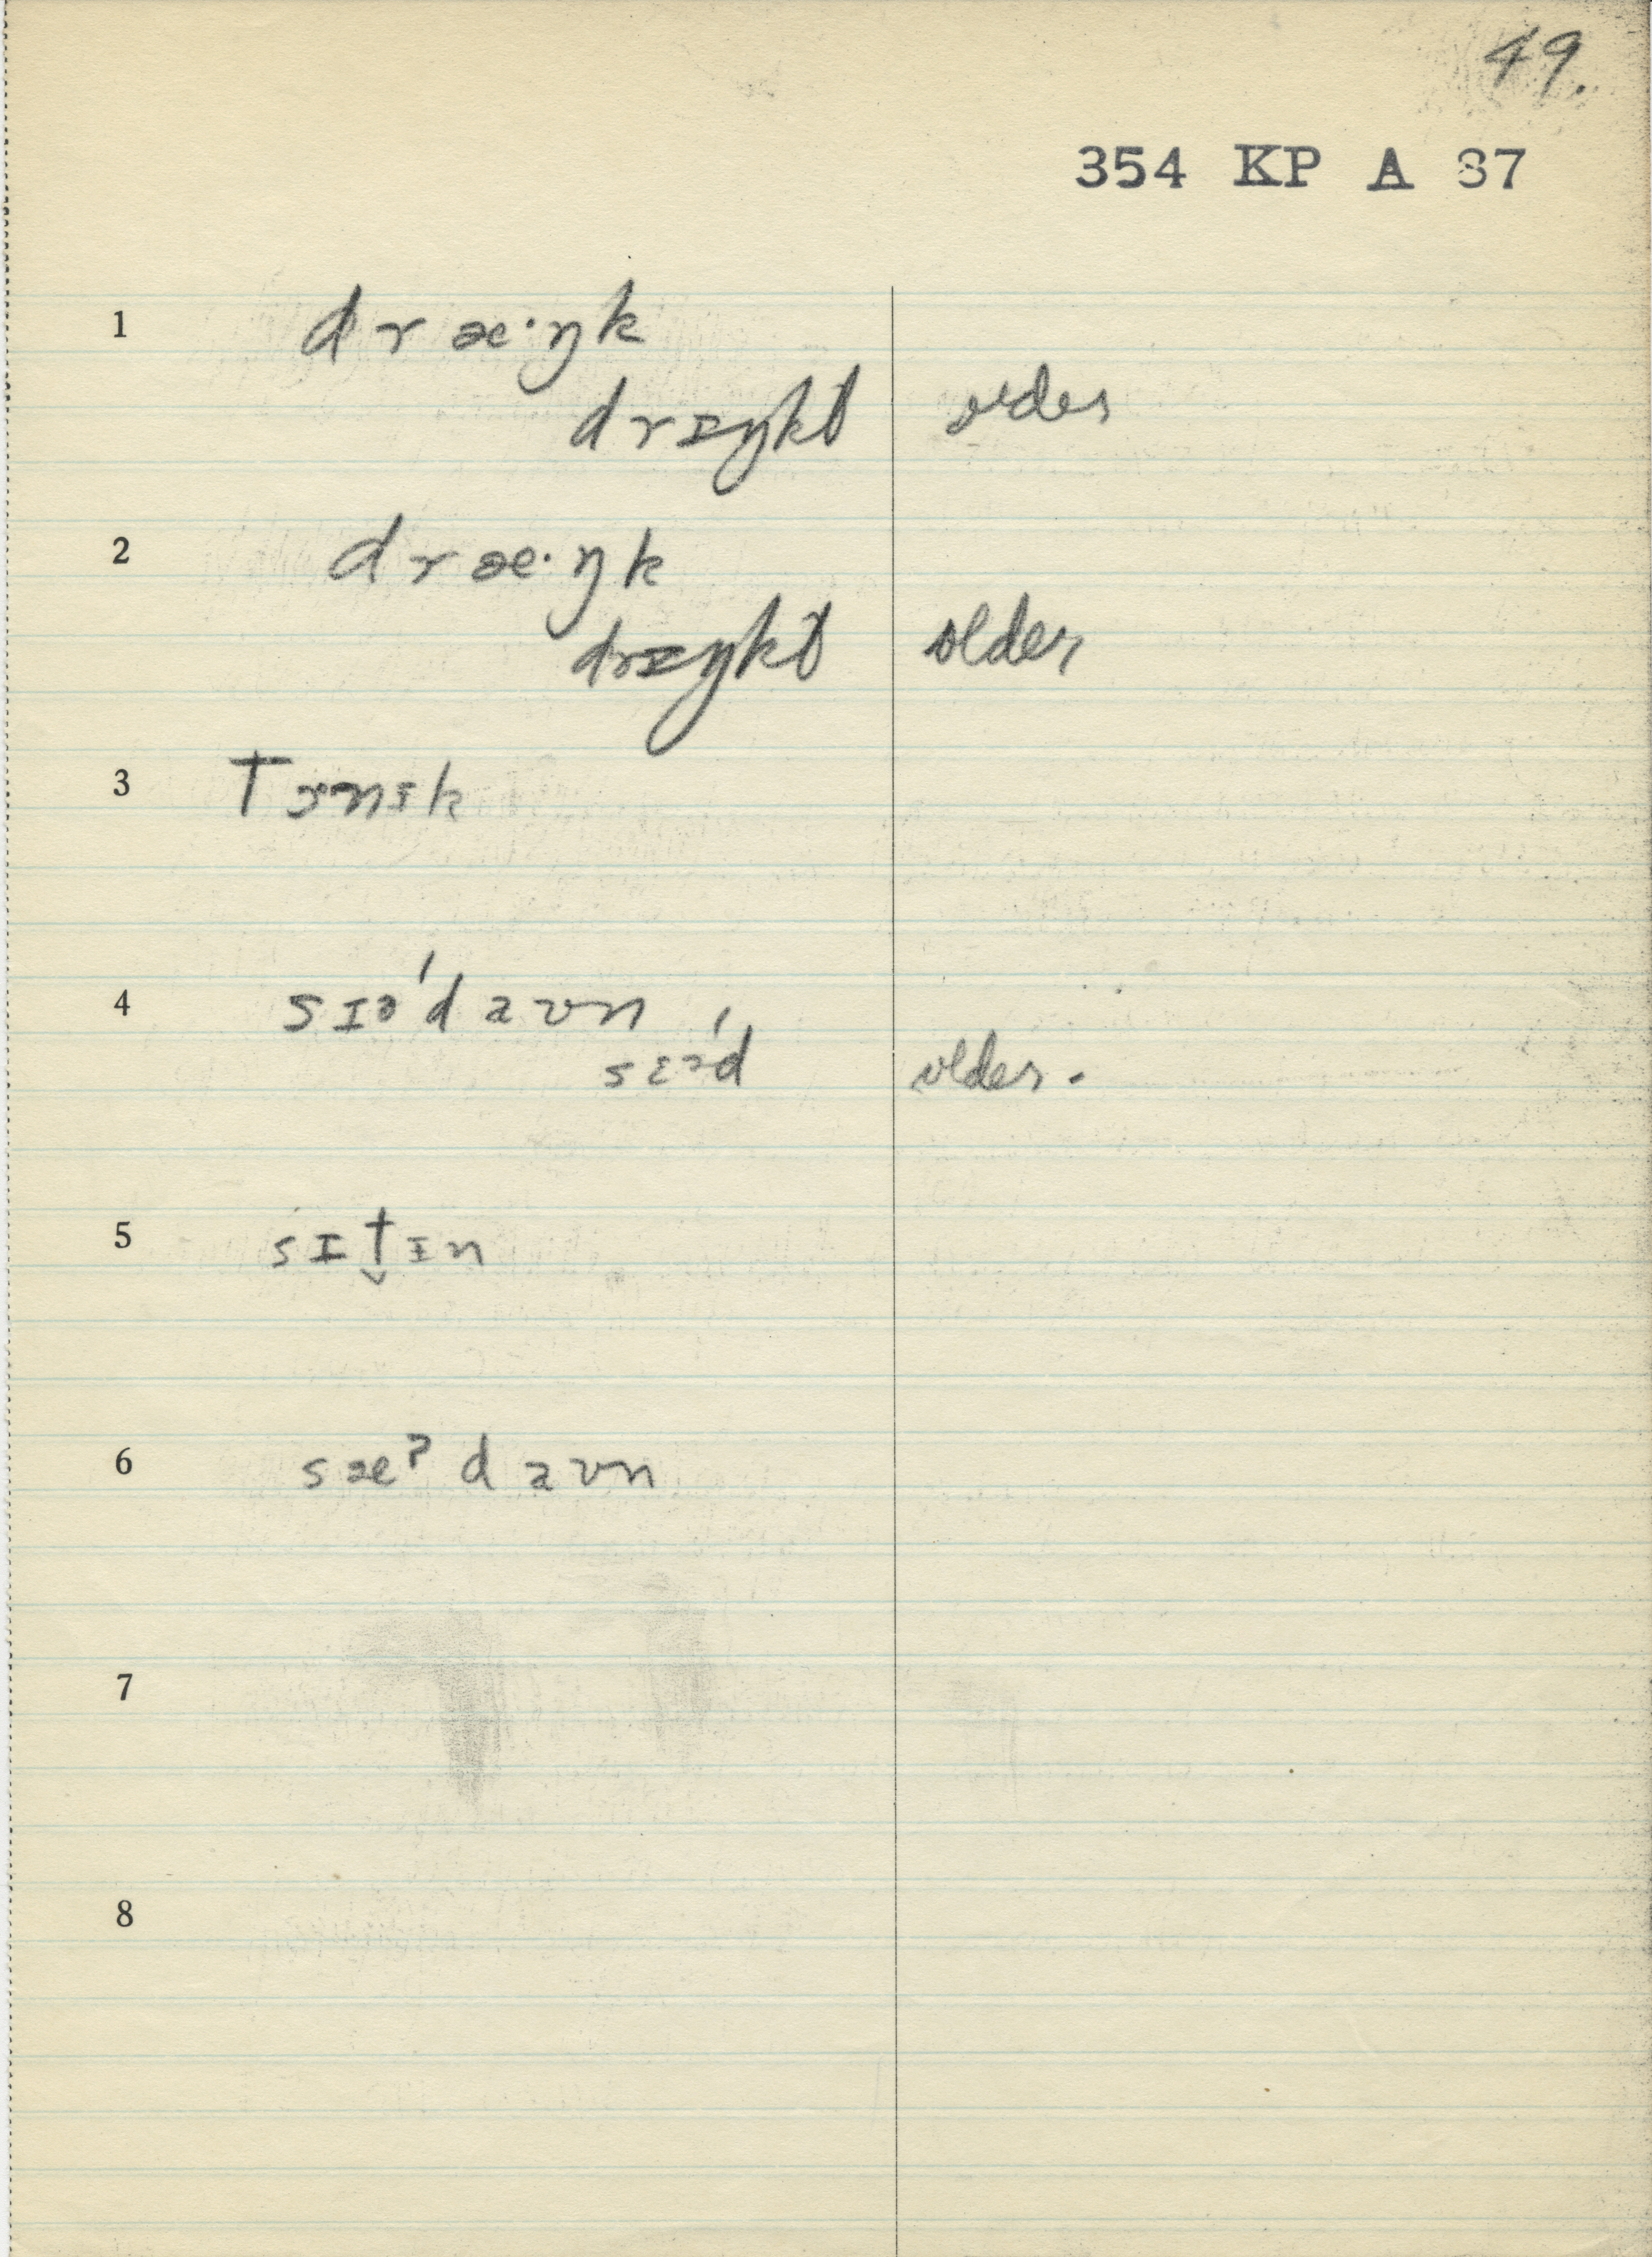 49.
354 KP A 87
1 dræ·ŋk
drɪŋkt older
2 dræ·ŋk
drɪŋkt older
3 
4 sɪə'd aʊn
sɛə'd older.
5 sɪt̬ɪn
6 sæʔ d aʊn
7
8